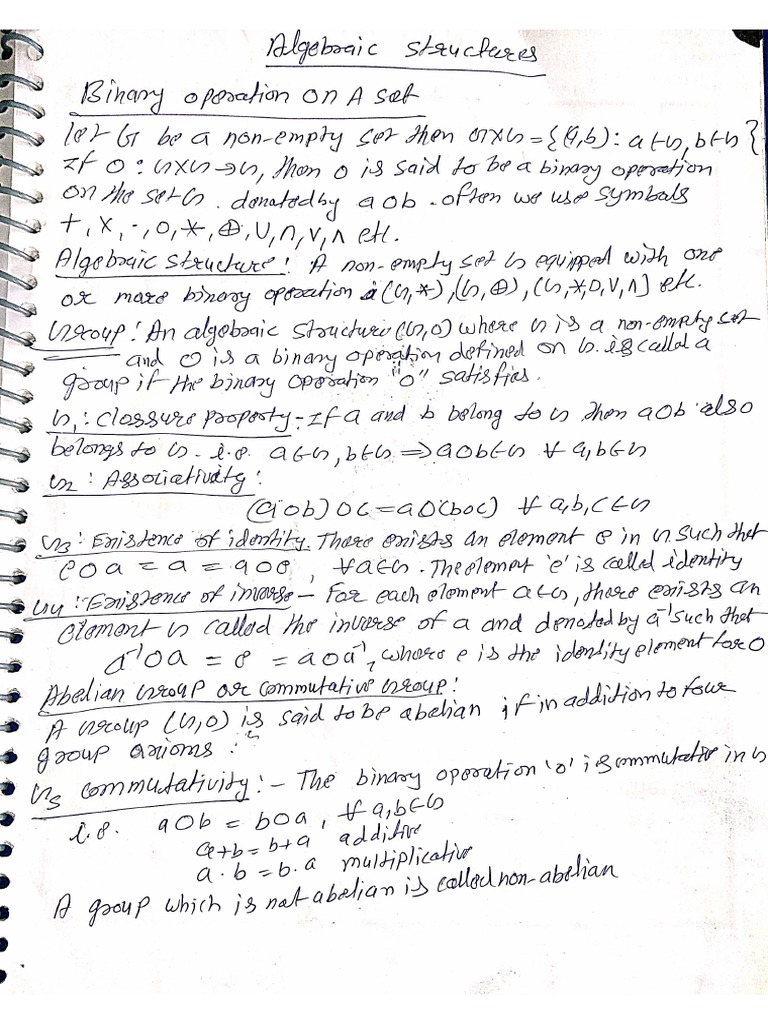 Algebraic structures
Binary operation on A set
let G be a non-empty set then G×G = {(a,b): a∈G, b∈G}
If O : G×G→G, then o is said to be a binary operation
on the set G. denoted by aob. often we use symbols
+, ×, ·, o, *, ⊕, ∪, ∩, ∨, ∧ etc.
Algebraic structure: A non-empty set G equipped with one
or more binary operation (G,*), (G,⊕), (G,*,o,∨,∧) etc.
Group: An algebraic structure (G,o) where G is a non-empty set
and o is a binary operation defined on G. is called a
group if the binary operation "o" satisfies.
G1: Classure property- If a and b belong to G then aob also
belongs to G. i.e. a∈G, b∈G ⇒ aob∈G ∀ a,b∈G
G2: Associativity:
(aob)oc = ao(boc) ∀ a,b,c∈G
G3: Existence of identity. There exists an element e in G such that
eoa = a = aoe, ∀a∈G. The element 'e' is called identity
G4: Existence of inverse - For each element a∈G, there exists an
element G called the inverse of a and denoted by a⁻¹ such that
a⁻¹oa = e = aoa⁻¹, where e is the identity element for o
Abelian Group or commutative Group:
A Group (G,o) is said to be abelian if in addition to four
group axioms:
G5 commutativity:- The binary operation 'o' is commutative in G
i.e. aob = boa, ∀ a,b∈G
a+b = b+a additive
a·b = b·a multiplicative
A group which is not abelian is called non-abelian